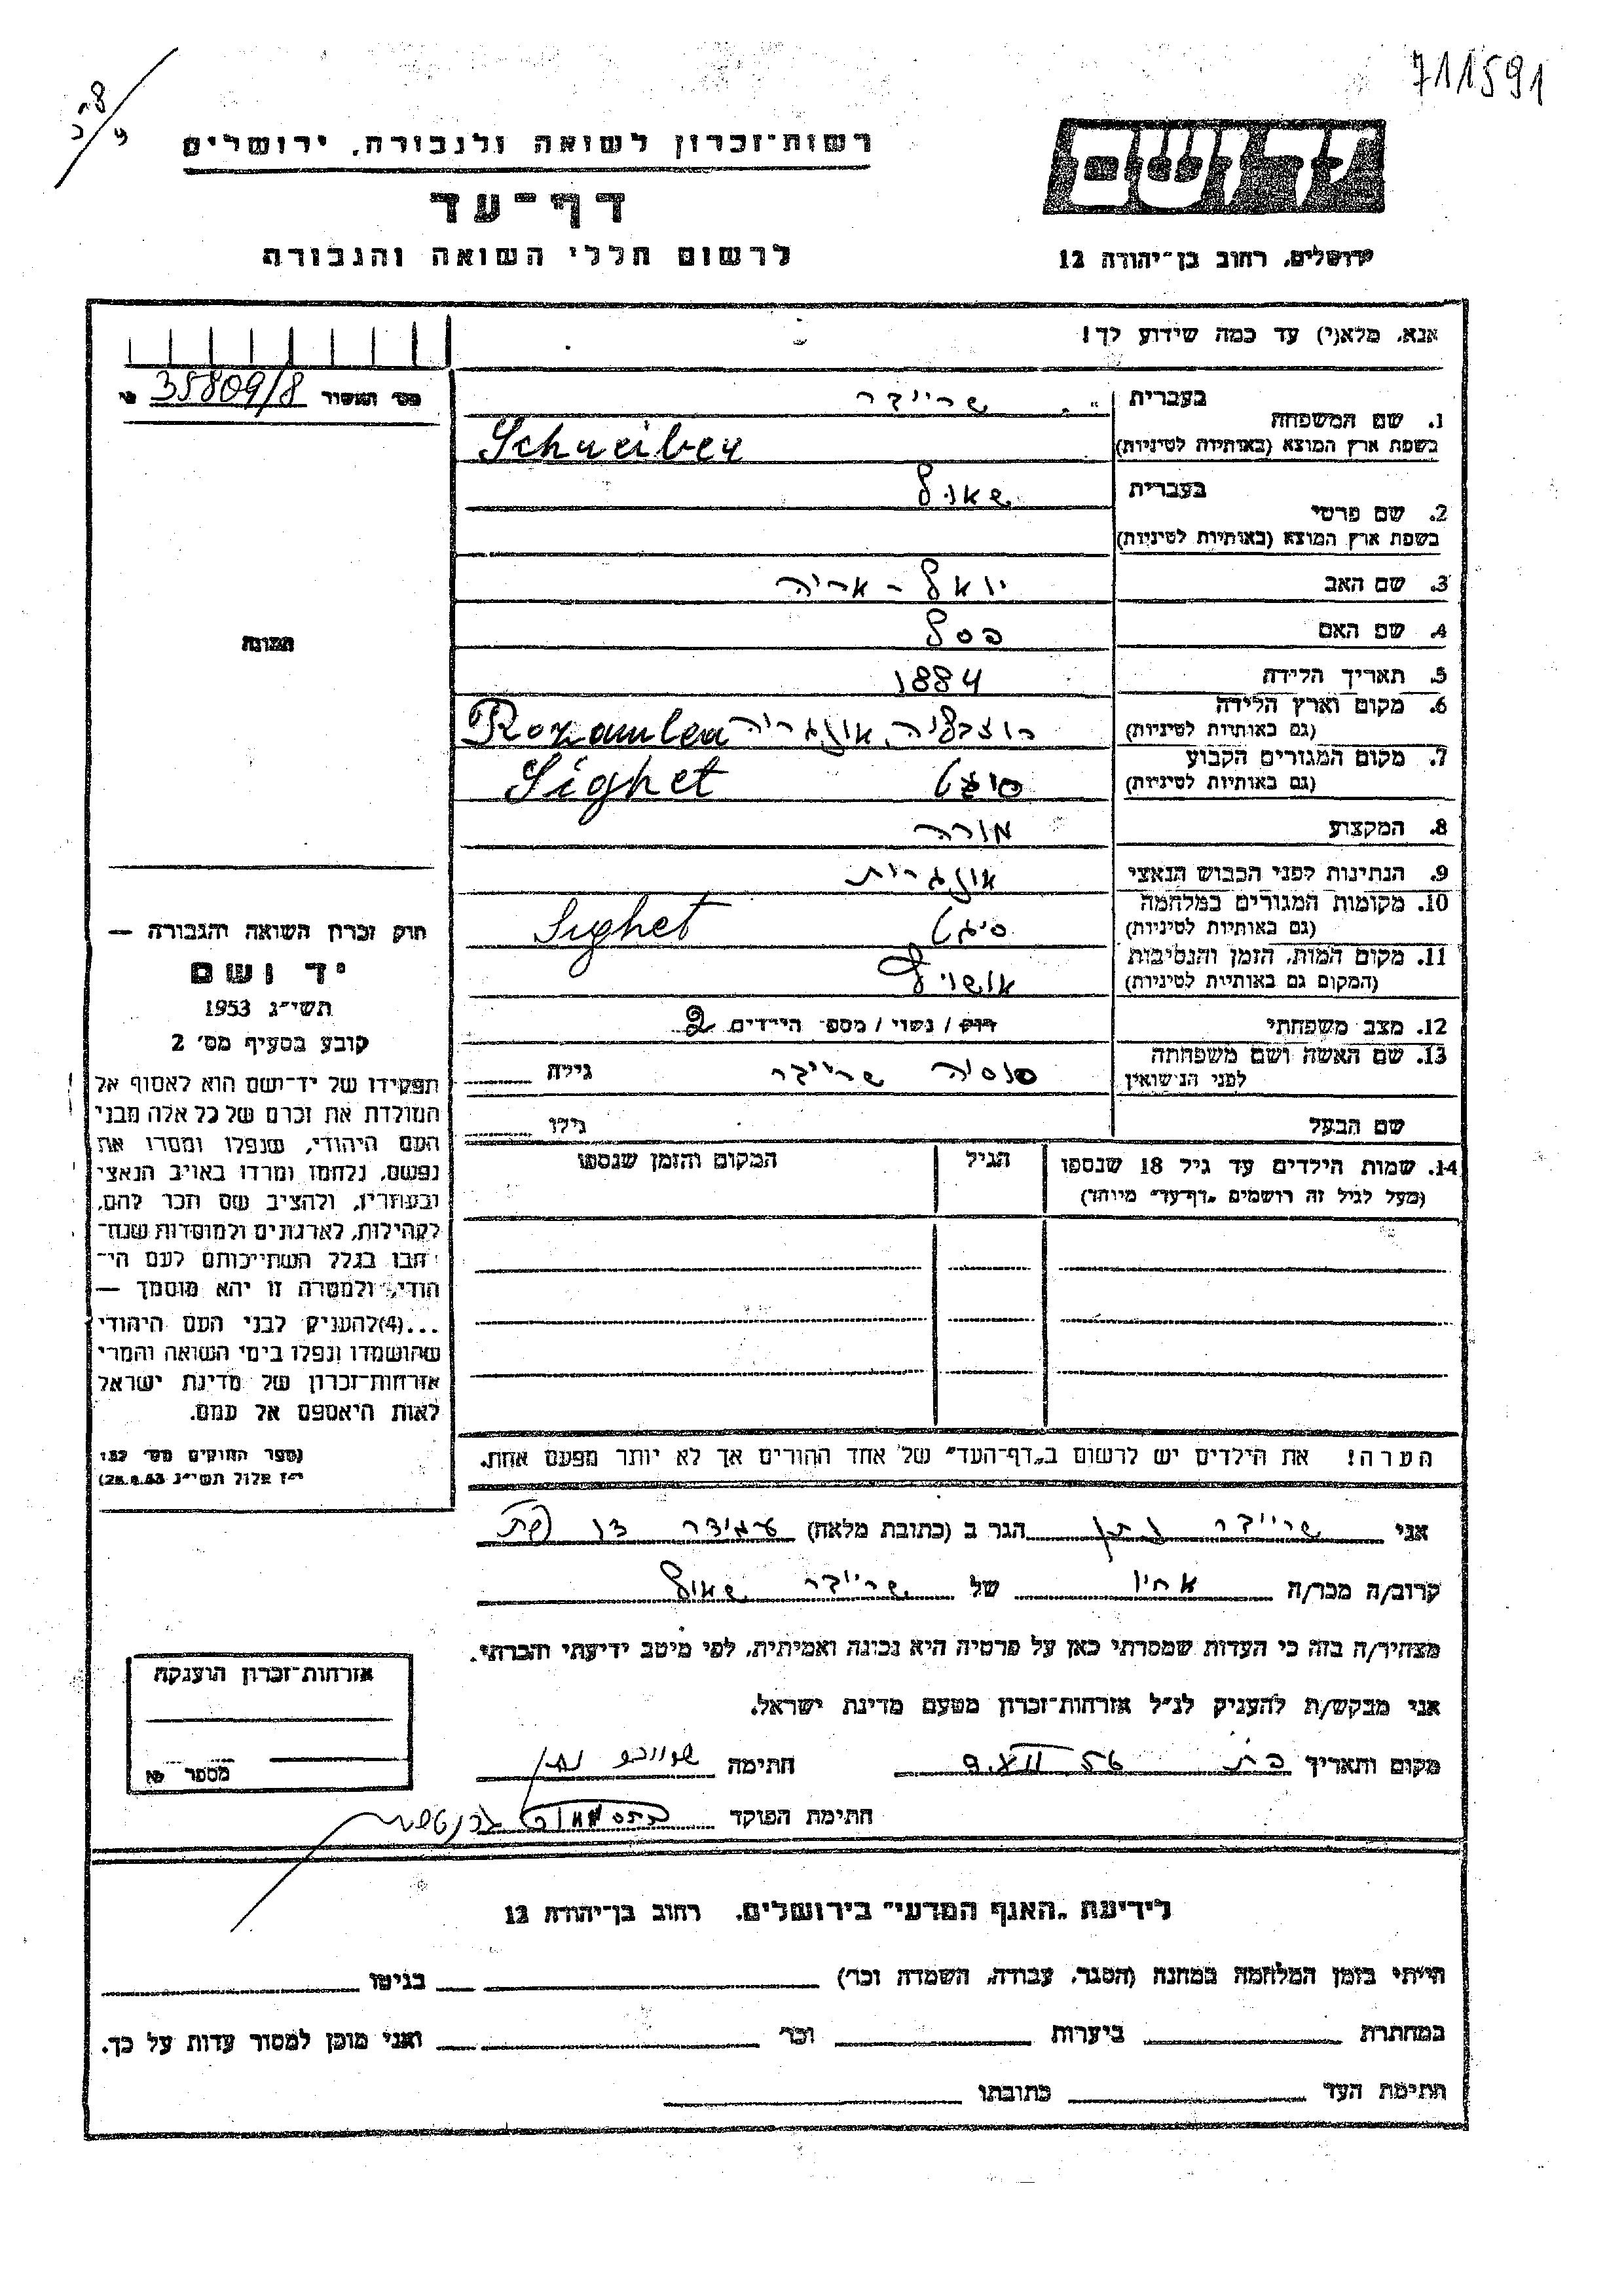 711591
רשות־זכרון לשואה ולגבורה, ירושלים
דף־עד
לרשום חללי השואה והגבורה
יד ושם
ירושלים, רחוב בן־יהודה 12
אנא, מלא(י) עד כמה שידוע לך!
35809/8
1. שם המשפחה בעברית שרייבר
בשפת ארץ המוצא (באותיות לטיניות) Schreiber
2. שם פרטי בעברית שאול
בשפת ארץ המוצא (באותיות לטיניות)
3. שם האב יואל - אריה
4. שם האם
5. תאריך הלידה 1884
6. מקום וארץ הלידה אונגריה
(גם באותיות לטיניות) Rozawlea
7. מקום המגורים הקבוע סיגט
(גם באותיות לטיניות) Sighet
8. המקצוע מורה
9. הנתינות לפני הכבוש הנאצי אונגרית
10. מקומות המגורים במלחמה סיגט
(גם באותיות לטיניות) Sighet
11. מקום המות, הזמן והנסיבות
(המקום גם באותיות לטיניות)
12. מצב משפחתי רווק / נשוי / מספר הילדים 2
13. שם האשה ושם משפחתה לפני הנישואין שרייבר גילה
שם הבעל גילו
14. שמות הילדים עד גיל 18 שנספו הגיל המקום והזמן שנספו
(מעל לגיל זה רושמים „דף־עד" מיוחד)
הערה! את הילדים יש לרשום ב„דף־העד" של אחד ההורים אך לא יותר מפעם אחת.
תמונה
חוק זכרון השואה והגבורה —
יד ושם
תשי"ג 1953
קובע בסעיף מס' 2
תפקידו של יד־ושם הוא לאסוף אל
המולדת את זכרם של כל אלה מבני
העם היהודי, שנפלו ומסרו את
נפשם, נלחמו ומרדו באויב הנאצי
ובעוזריו, ולהציב שם וזכר להם,
לקהילות, לארגונים ולמוסדות שנח־
רבו בגלל השתייכותם לעם הי־
הודי, ולמטרה זו יהא מוסמך —
...(4) להעניק לבני העם היהודי
שהושמדו ונפלו בימי השואה והמרי
אזרחות־זכרון של מדינת ישראל
לאות היאספם אל עמם.
(ספר החוקים מס' 132
י"ז אלול תשי"ג 28.8.53)
אני שרייבר נתן הגר ב (כתובת מלאה)
קרוב/ה מכר/ה אחיו של שרייבר שאול
מצהיר/ה בזה כי העדות שמסרתי כאן על פרטיה היא נכונה ואמיתית, לפי מיטב ידיעתי והכרתי.
אני מבקש/ת להעניק לנ"ל אזרחות־זכרון מטעם מדינת ישראל.
מקום ותאריך 9.XII 56 חתימה
חתימת הפוקד
אזרחות־זכרון הוענקה
מספר
לידיעת „האגף המדעי" בירושלים, רחוב בן־יהודה 12
הייתי בזמן המלחמה במחנה (הסגר, עבודה, השמדה וכו') בגיטו
במחתרת ביערות וכו' ואני מוכן למסור עדות על כך.
חתימת העד כתובתו